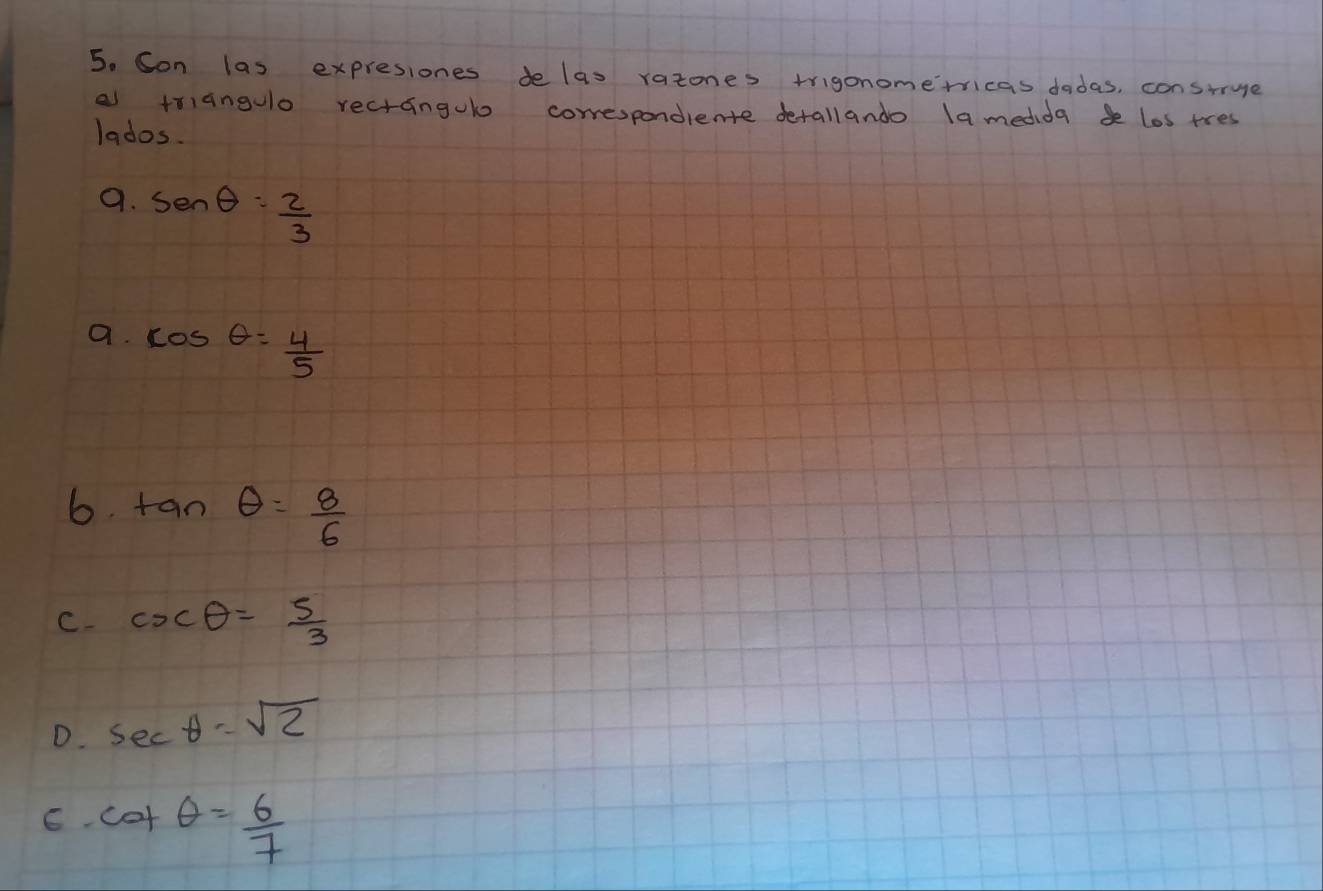 5. Con las expresiones de las razones trigonométricas dadas, construye
el triángulo rectángulo correspondiente detallando la medida de los tres
lados.
a. sen θ = 2/3
a. cos θ = 4/5
b. tan θ = 8/6
c- csc θ = 5/3
D. sec θ = √2
E. cot θ = 6/7